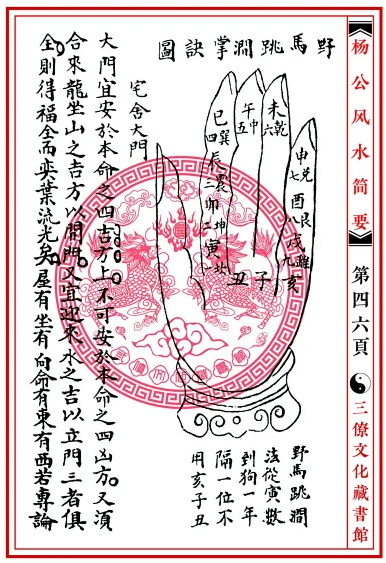 杨公风水简要
第四六頁
三僚文化藏書館
野馬跳澗掌訣圖
申七兌
酉八艮
戌九離
亥
子
丑
未六乾
午五中
巳四巽
辰三震
卯二坤
寅一坎
野馬跳澗
法從寅數
到狗一年
隔一位不
用亥子丑
宅舍大門
大門宜安於本命之四吉方上不可安於本命之四凶方又須
合來龍坐山之吉方以開門又宜迎來水之吉以立門三者俱
全則得福全而奕葉流光矣屋有坐有向命有東有西若專論